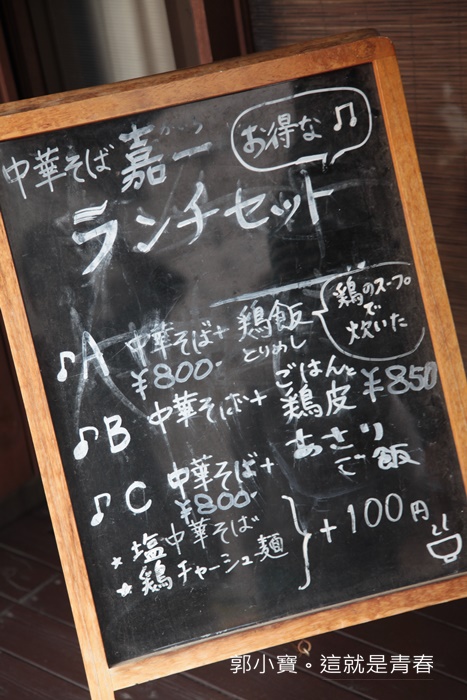 お得な♫
中華そば 嘉一
かいち
ランチセット
♪A 中華そば+ 鶏飯
とりめし
鶏のスープ
で
炊いた
¥800-
♪B 中華そば+ ごはんと
鶏皮 ¥850
♪C 中華そば+ あさり
ご飯
¥800-
★塩中華そば
★鶏チャーシュー麺
+100円
郭小寶。這就是青春